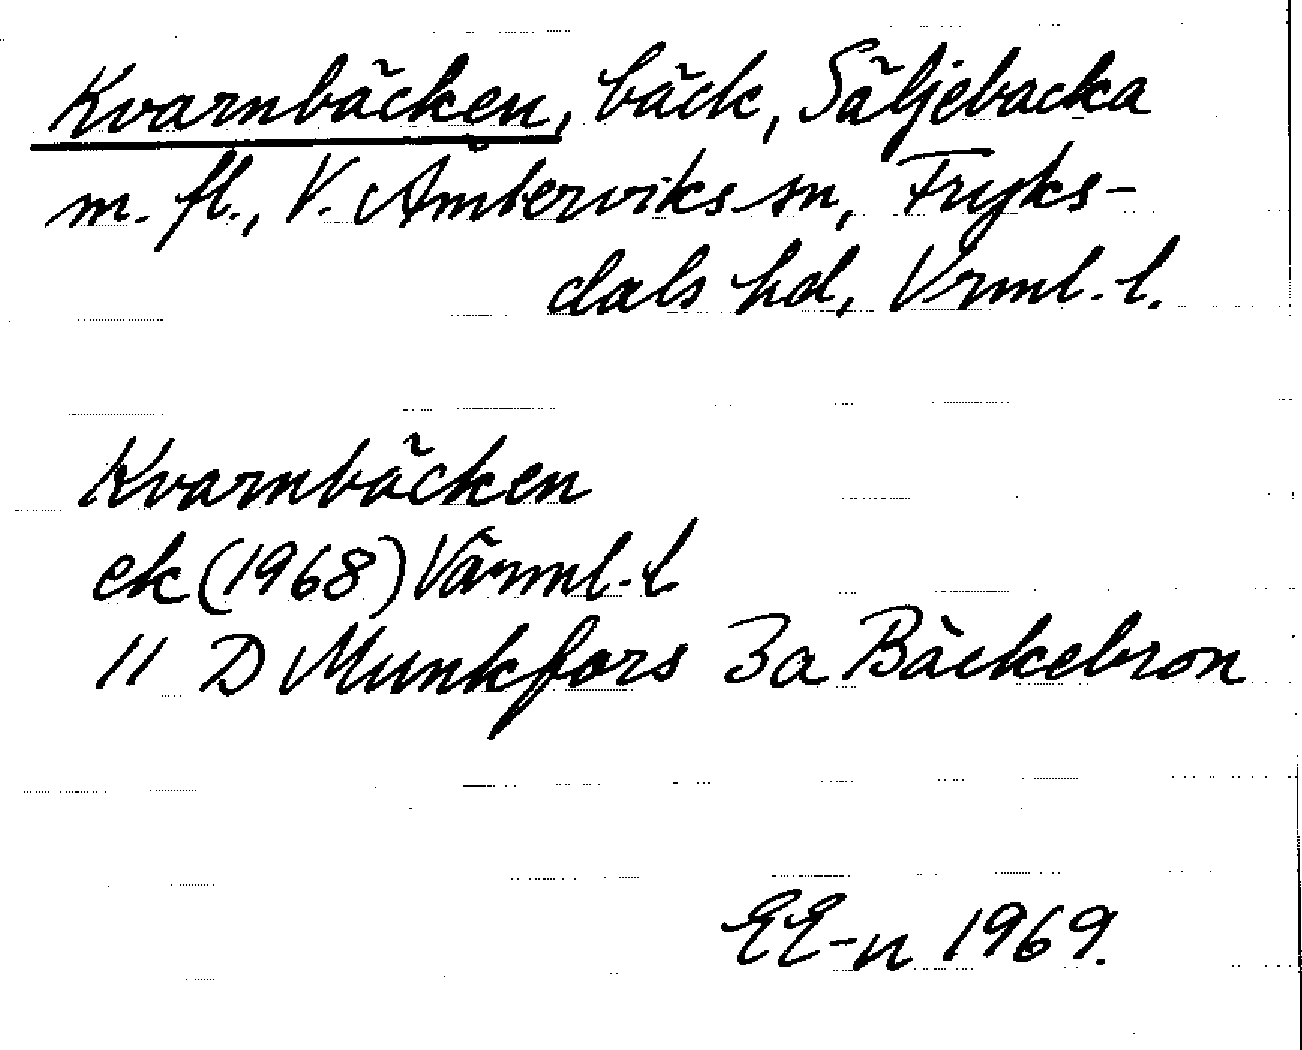 Kvarnbäcken, bäck, Säljebacka
m. fl., V. Ämterviks sn, Fryks-
dals hd, Vrml. l.
Kvarnbäcken
ek (1968) Värml. l
11 D Munkfors 3a Bäckebron
EE-n 1969.